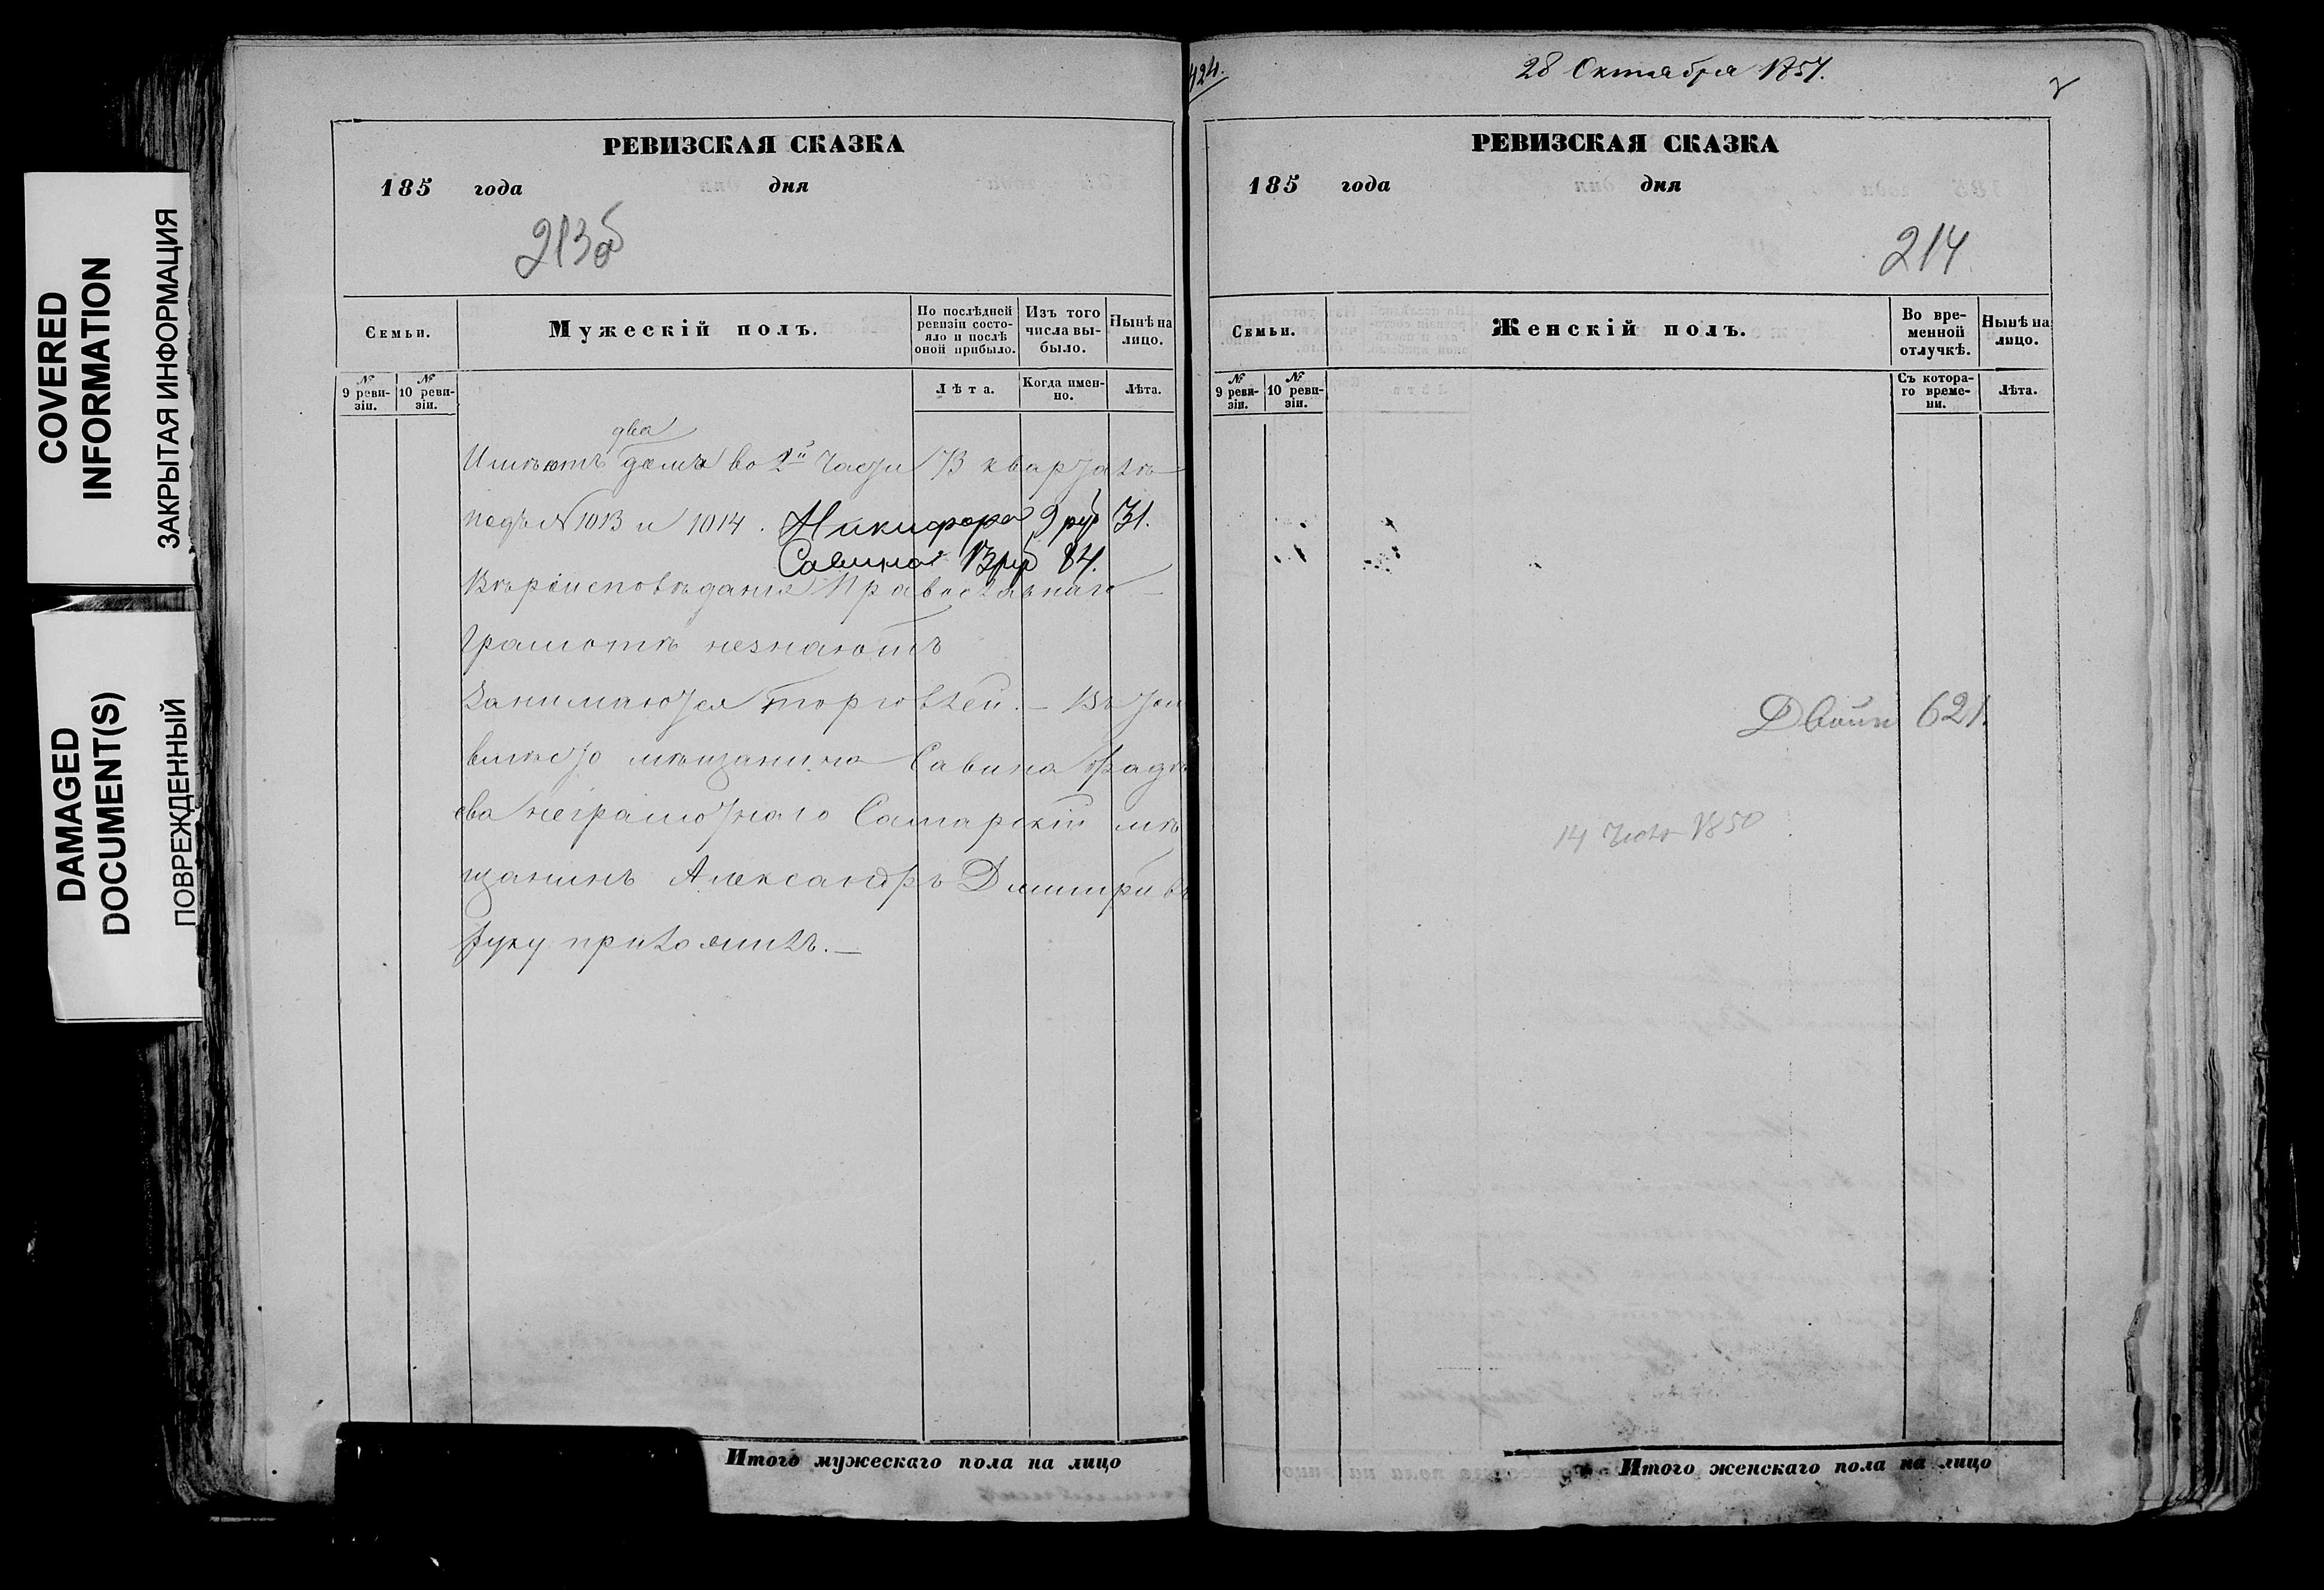 COVERED
INFORMATION
ЗАКРЫТАЯ ИНФОРМАЦИЯ
DAMAGED
DOCUMENT(S)
ПОВРЕЖДЕННЫЙ
РЕВИЗСКАЯ СКАЗКА
185 года дня
213об
Семьи.
Мужескій полъ.
По послѣдней ревизіи состояло и послѣ оной прибыло.
Изъ того числа выбыло.
Нынѣ на лицо.
№ 9 ревизіи.
№ 10 ревизіи.
Лѣта.
Когда именно.
Лѣта.
два
Имѣютъ дома во 2й части 13 кварталѣ
подъ № 1013 и 1014. Никифора 9 руб 31.
Савина 13 руб 84.
Вѣроисповѣданія Православнаго
Грамотѣ незнаютъ
Занимаются торговлей. —
вмѣсто мѣщанина Савина Фадѣ
ева неграмотнаго Самарскій мѣ
щанинъ Александръ Дмитріевъ
руку приложилъ. —
424.
28 Октября 1857.
РЕВИЗСКАЯ СКАЗКА
185 года дня
214
Семьи.
Женскій полъ.
Во временной отлучкѣ.
Нынѣ на лицо.
№ 9 ревизіи.
№ 10 ревизіи.
Съ котораго времени.
Лѣта.
621.
14 1850
Итого мужескаго пола на лицо
Итого женскаго пола на лицо